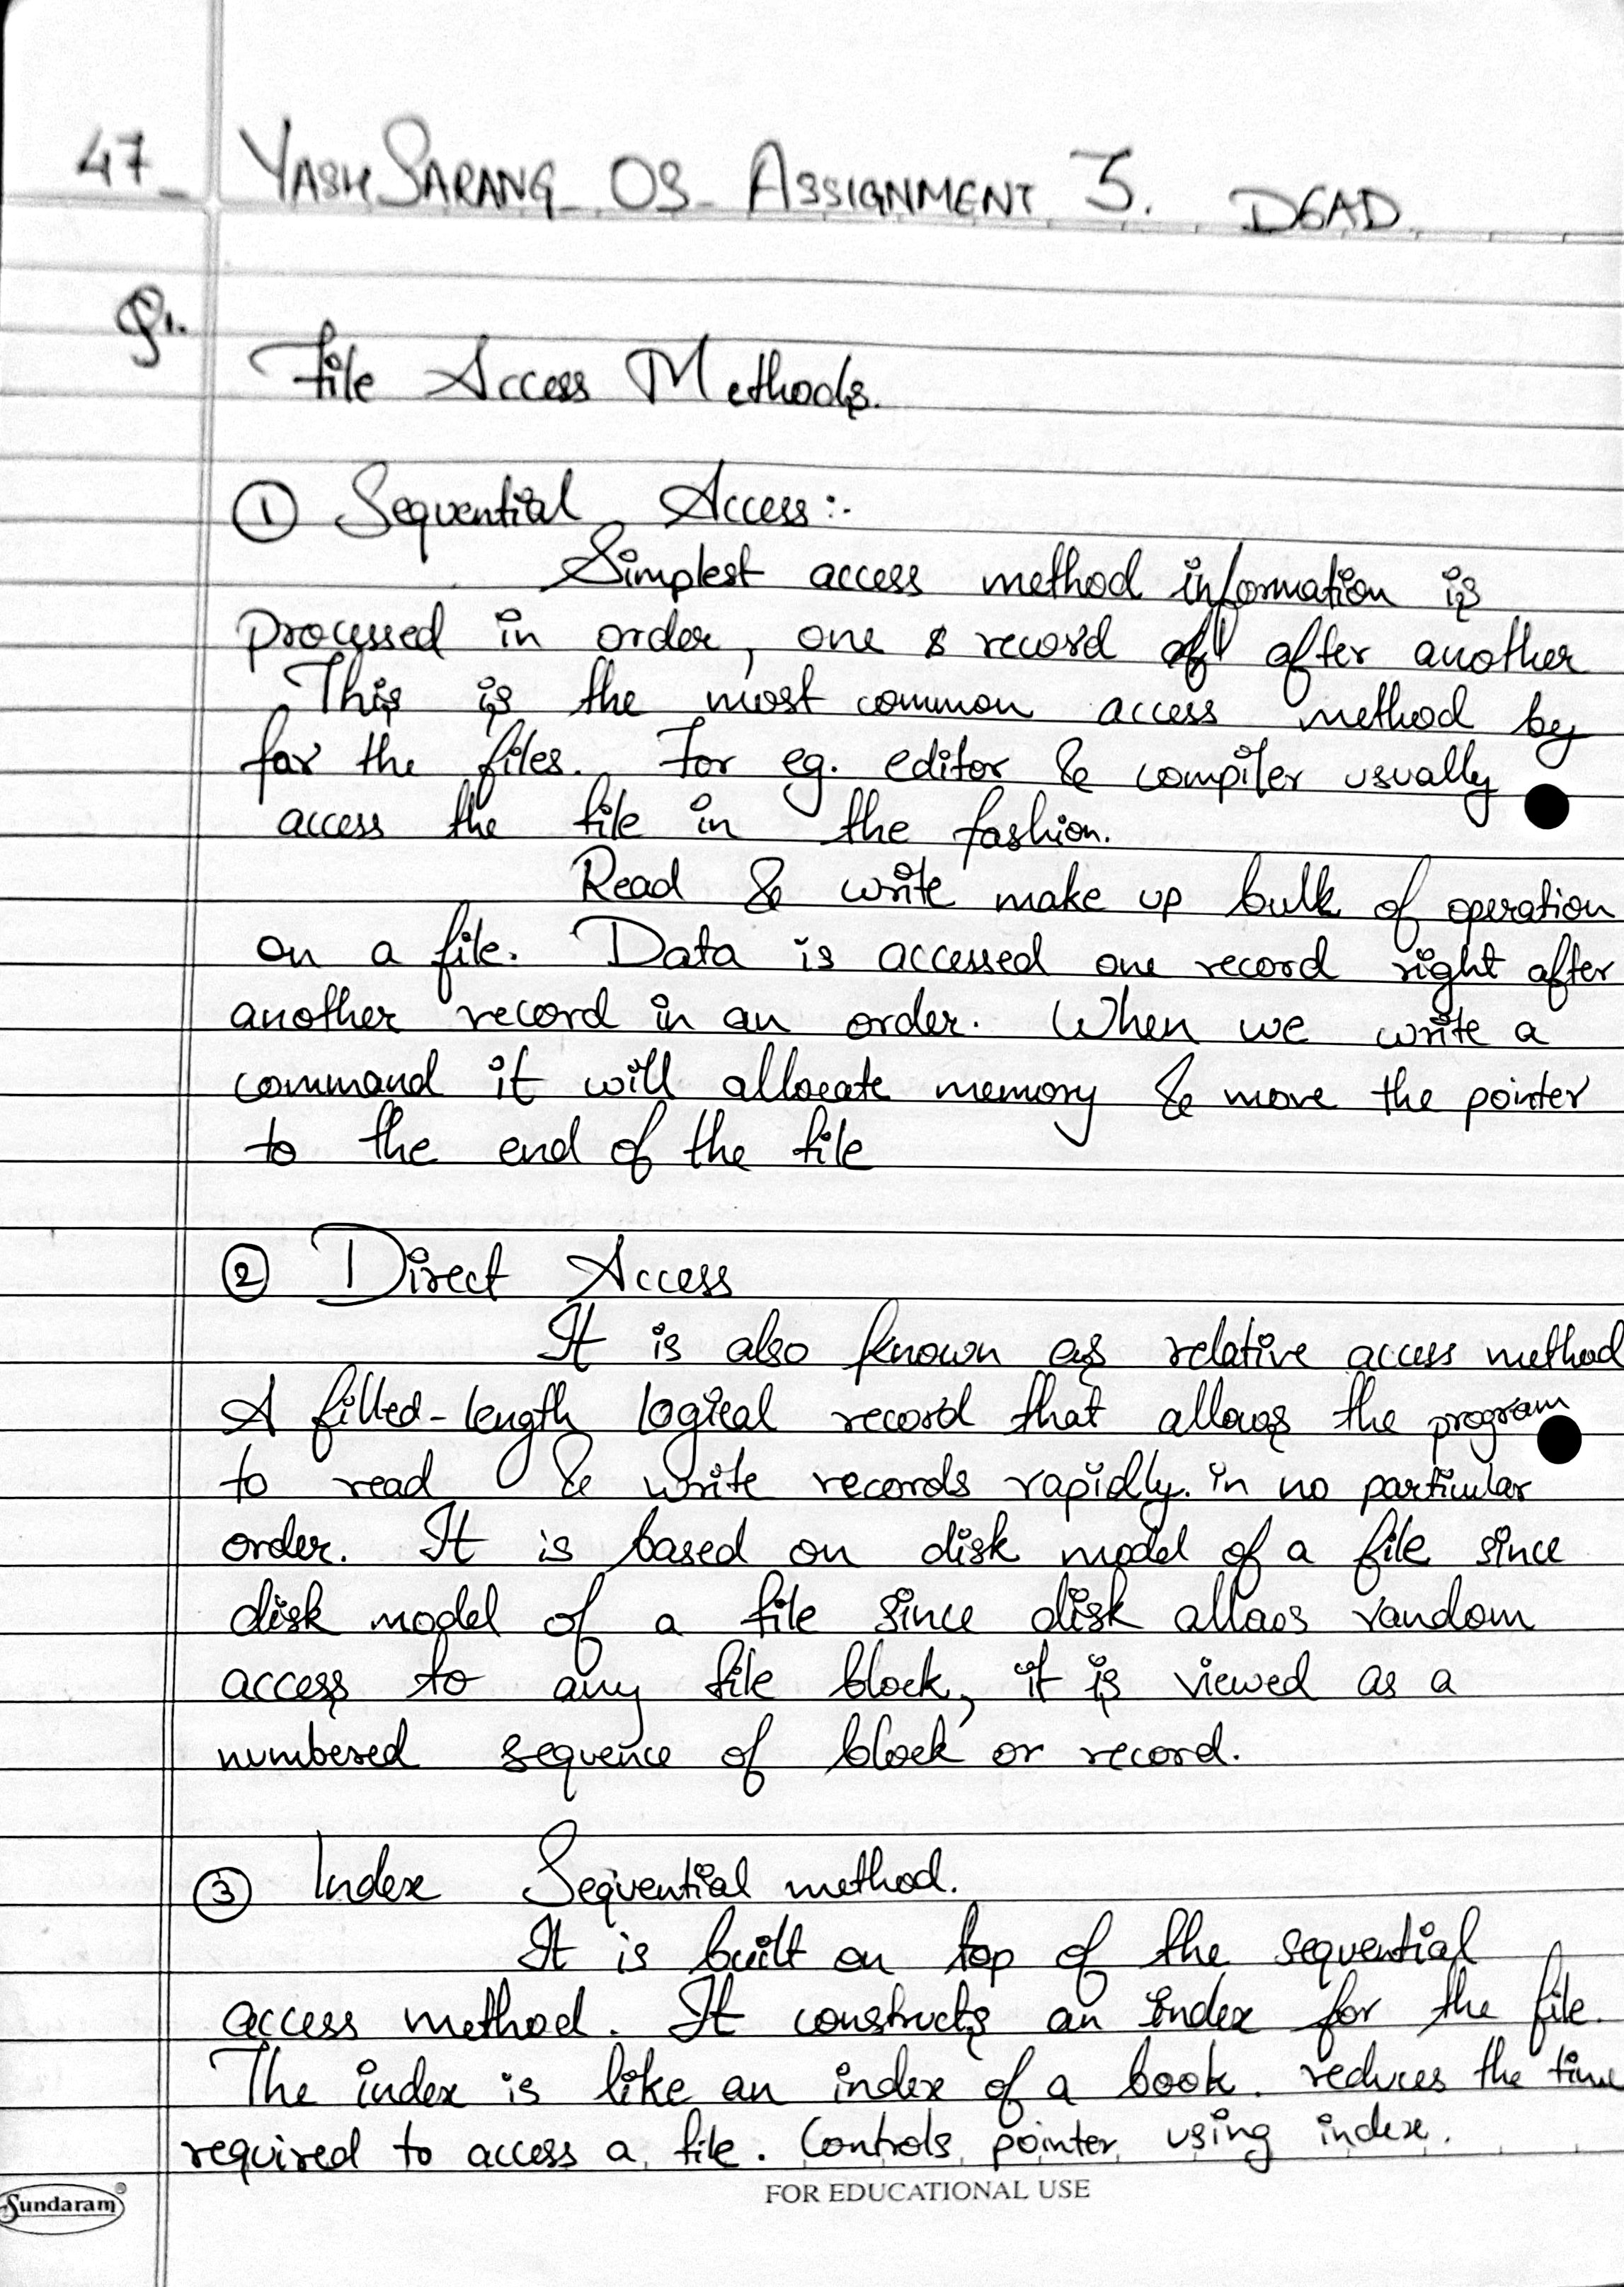 47_ YASH SARANG_OS_ ASSIGNMENT 3. D6AD
Q1.
File Access Methods.
① Sequential Access:-
Simplest access method information is
processed in order, one record after another
This is the most common access method by
far the files. For eg. editor & compiler usually
access the file in the fashion.
Read & write make up bulk of operation
on a file. Data is accessed one record right after
another record in an order. When we write a
command it will allocate memory & move the pointer
to the end of the file
② Direct Access
It is also known as relative access method
A filled-length logical record that allows the program
to read & write records rapidly. in no particular
order. It is based on disk model of a file since
disk model of a file since disk allaos random
access to any file block, it is viewed as a
numbered sequence of block or record.
③ Index Sequential method.
It is built on top of the sequential
access method. It constructs an index for the file.
The index is like an index of a book. reduces the time
required to access a file. Controls pointer using index.
Sundaram®
FOR EDUCATIONAL USE